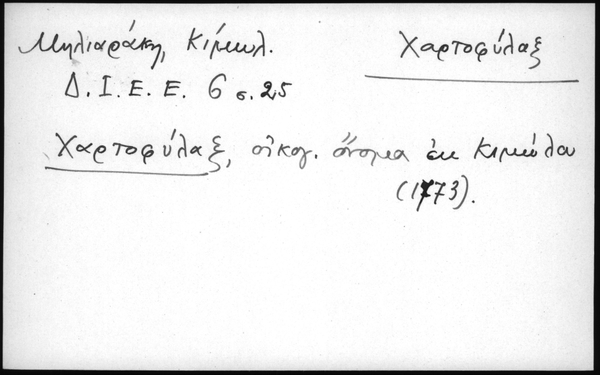 Μηλιαράκη, Κίμωλ.
Χαρτοφύλαξ
Δ. Ι. Ε. Ε. 6 σ. 25
Χαρτοφύλαξ, οἰκογ. ὄνομα ἐκ Κιμώλου
(1773).